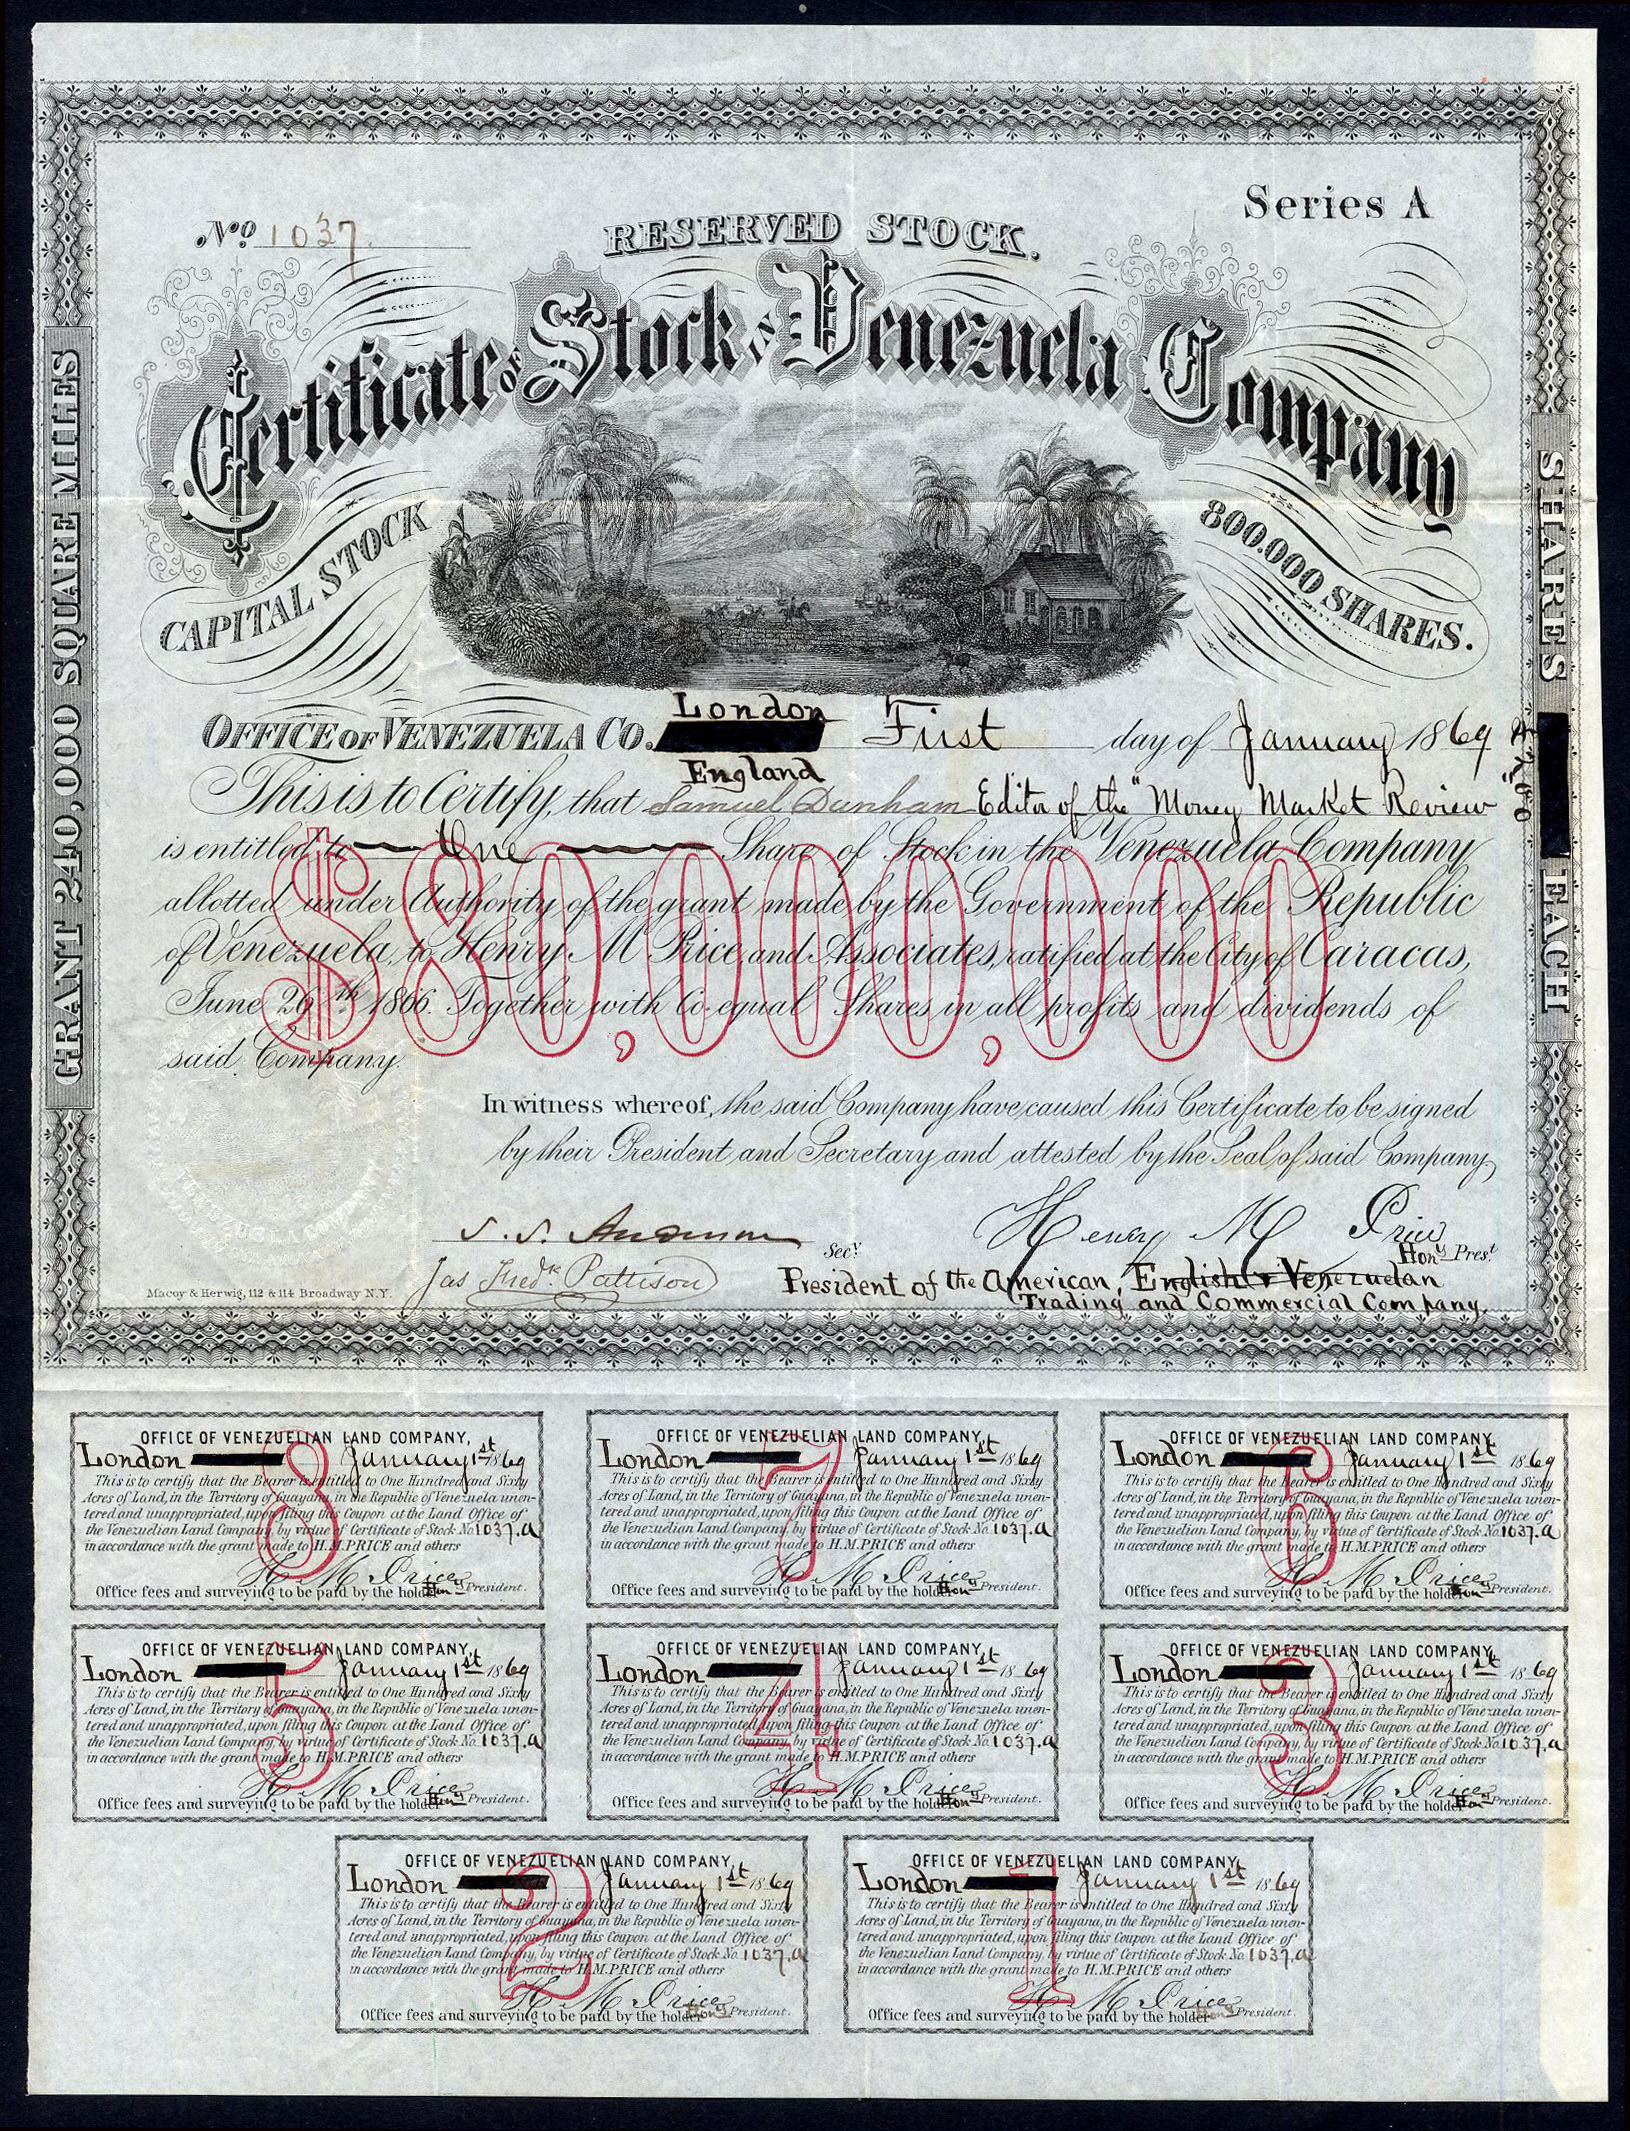 Series A
No. 1037.
RESERVED STOCK.
Certificate of Stock in the Venezuela Company
CAPITAL STOCK
800.000 SHARES.
GRANT 240,000 SQUARE MILES
SHARES EACH
OFFICE OF VENEZUELA CO. London First day of January 1869
England
This is to Certify, that Samuel Dunham Editor of the "Money Market Review"
is entitled to One Share of Stock in the Venezuela Company
allotted under Authority of the grant made by the Government of the Republic
of Venezuela, to Henry M Price and Associates, ratified at the City of Caracas,
June 26th 1866. Together with Co-equal Shares in all profits and dividends of
said Company.
$80,000,000
In witness whereof, the said Company have caused this Certificate to be signed
by their President and Secretary and attested by the Seal of said Company,
Henry M Price
Secy.
Hony Prest.
Jas Fredk. Pattison
President of the American, English & Venezuelan
Trading and Commercial Company.
Macoy & Herwig, 112 & 114 Broadway N.Y.
OFFICE OF VENEZUELIAN LAND COMPANY,
London January 1st 1869
This is to certify that the Bearer is entitled to One Hundred and Sixty
Acres of Land, in the Territory of Guayana, in the Republic of Venezuela unen-
tered and unappropriated, upon filing this Coupon at the Land Office of
the Venezuelian Land Company, by virtue of Certificate of Stock No. 1037.a
in accordance with the grant made to H.M.PRICE and others
8
H. M. Price
Hony President.
Office fees and surveying to be paid by the holder
OFFICE OF VENEZUELIAN LAND COMPANY,
London January 1st 1869
This is to certify that the Bearer is entitled to One Hundred and Sixty
Acres of Land, in the Territory of Guayana, in the Republic of Venezuela unen-
tered and unappropriated, upon filing this Coupon at the Land Office of
the Venezuelian Land Company, by virtue of Certificate of Stock No. 1037.a
in accordance with the grant made to H.M.PRICE and others
7
H. M. Price
Hony President.
Office fees and surveying to be paid by the holder
OFFICE OF VENEZUELIAN LAND COMPANY,
London January 1st 1869
This is to certify that the Bearer is entitled to One Hundred and Sixty
Acres of Land, in the Territory of Guayana, in the Republic of Venezuela unen-
tered and unappropriated, upon filing this Coupon at the Land Office of
the Venezuelian Land Company, by virtue of Certificate of Stock No. 1037.a
in accordance with the grant made to H.M.PRICE and others
6
H. M. Price
Hony President.
Office fees and surveying to be paid by the holder
OFFICE OF VENEZUELIAN LAND COMPANY,
London January 1st 1869
This is to certify that the Bearer is entitled to One Hundred and Sixty
Acres of Land, in the Territory of Guayana, in the Republic of Venezuela unen-
tered and unappropriated, upon filing this Coupon at the Land Office of
the Venezuelian Land Company, by virtue of Certificate of Stock No. 1037.a
in accordance with the grant made to H.M.PRICE and others
5
H. M. Price
Hony President.
Office fees and surveying to be paid by the holder
OFFICE OF VENEZUELIAN LAND COMPANY,
London January 1st 1869
This is to certify that the Bearer is entitled to One Hundred and Sixty
Acres of Land, in the Territory of Guayana, in the Republic of Venezuela unen-
tered and unappropriated, upon filing this Coupon at the Land Office of
the Venezuelian Land Company, by virtue of Certificate of Stock No. 1037.a
in accordance with the grant made to H.M.PRICE and others
4
H. M. Price
Hony President.
Office fees and surveying to be paid by the holder
OFFICE OF VENEZUELIAN LAND COMPANY,
London January 1st 1869
This is to certify that the Bearer is entitled to One Hundred and Sixty
Acres of Land, in the Territory of Guayana, in the Republic of Venezuela unen-
tered and unappropriated, upon filing this Coupon at the Land Office of
the Venezuelian Land Company, by virtue of Certificate of Stock No. 1037.a
in accordance with the grant made to H.M.PRICE and others
3
H. M. Price
Hony President.
Office fees and surveying to be paid by the holder
OFFICE OF VENEZUELIAN LAND COMPANY,
London January 1st 1869
This is to certify that the Bearer is entitled to One Hundred and Sixty
Acres of Land, in the Territory of Guayana, in the Republic of Venezuela unen-
tered and unappropriated, upon filing this Coupon at the Land Office of
the Venezuelian Land Company, by virtue of Certificate of Stock No. 1037.a
in accordance with the grant made to H.M.PRICE and others
2
H. M. Price
Hony President.
Office fees and surveying to be paid by the holder
OFFICE OF VENEZUELIAN LAND COMPANY,
London January 1st 1869
This is to certify that the Bearer is entitled to One Hundred and Sixty
Acres of Land, in the Territory of Guayana, in the Republic of Venezuela unen-
tered and unappropriated, upon filing this Coupon at the Land Office of
the Venezuelian Land Company, by virtue of Certificate of Stock No. 1037.a
in accordance with the grant made to H.M.PRICE and others
1
H. M. Price
Hony President.
Office fees and surveying to be paid by the holder